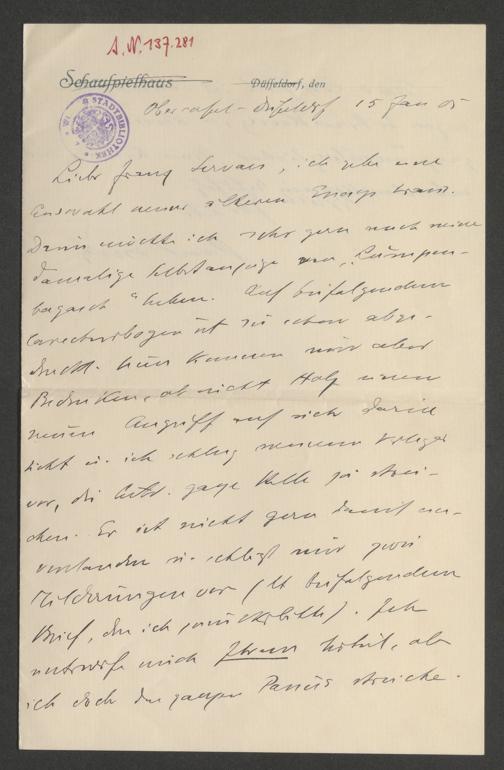 A.N. 137.281
Schauspielhaus Düsseldorf, den
STADTBIBLIOTHEK WI
Obercassel-Düsseldorf 15 Jan 05
Lieber Franz Servaes, ich gebe eine
Auswahl meiner älteren Essays heraus.
Darin möchte ich sehr gern auch meine
damalige Selbstanzeige von „Lumpen-
bagasch" haben. Auf beifolgendem
Correcturbogen ist sie schon abge-
druckt. Nun kommen mir aber
Bedenken, ob nicht Holz einen
neuen Angriff auf sich darin
sieht u. ich schlug meinem Verleger
vor, die betr. ganze Stelle zu strei-
chen. Er ist nicht gern damit ein-
verstanden u. schlägt mir zwei
Milderungen vor (lt beifolgendem
Brief, den ich zurückerbitte). Ich
unterwerfe mich Ihrem Urteil, ob
ich doch den ganzen Passus streiche.